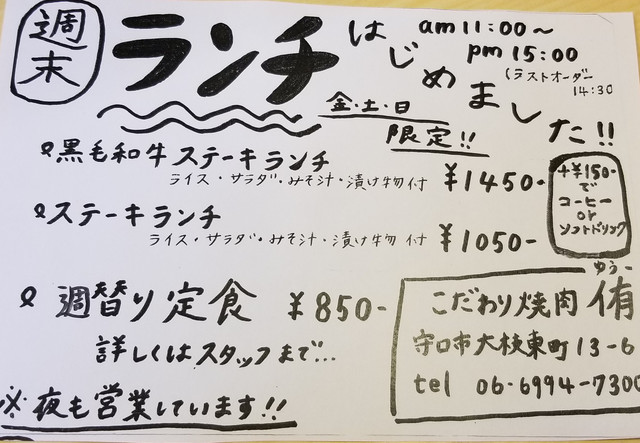 週末
ランチ
はじめました!!
am 11:00〜
pm 15:00
(ラストオーダー
14:30
金・土・日
限定!!
黒毛和牛ステーキランチ
ライス・サラダ・みそ汁・漬け物付 ¥1450-
ステーキランチ
ライス・サラダ・みそ汁・漬け物付 ¥1050-
+¥150-
で
コーヒー
or
ソフトドリンク
週替り定食 ¥850-
詳しくはスタッフまで...
※夜も営業しています!!
ゆうー
こだわり焼肉 侑
守口市大枝東町13-6
tel 06-6994-7300